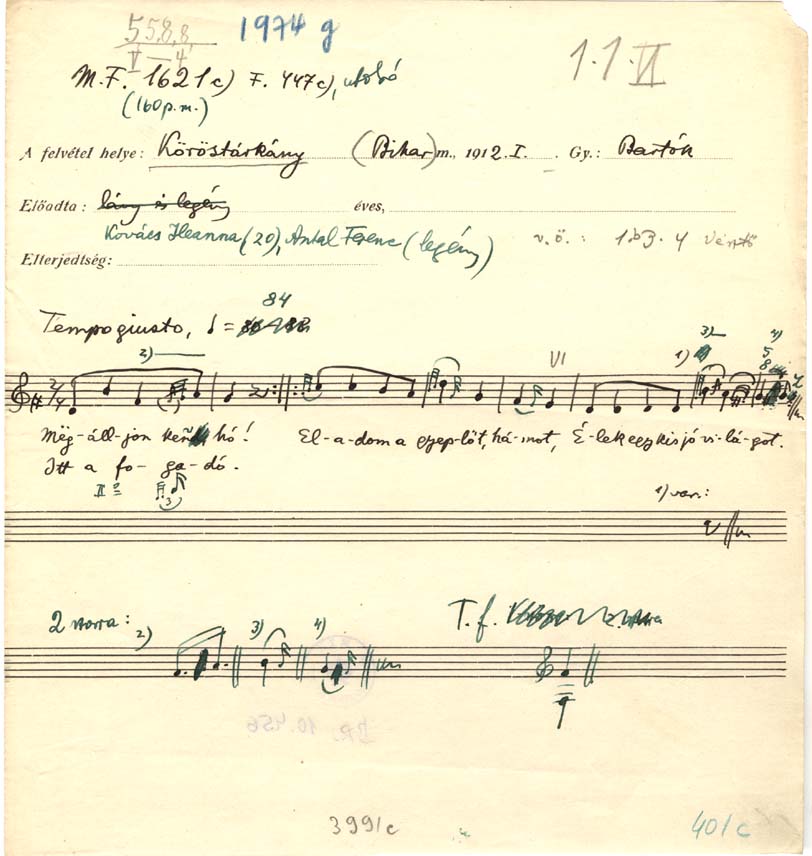 5 5, 8, 8, 1974 g
V — 4 1.1.VI
M.F. 1621c) F. 447c), utolsó
(160 p.m.)
A felvétel helye: Köröstárkány (Bihar) m., 1912. I. Gy.: Bartók
Előadta: lány és legény éves,
Kovács Ileanna (20), Antal Ferenc (legény) v.ö.: 
Elterjedtség:
84
Tempo giusto, =
2) VI 1) 3) 4)
5
8
2/4
Mëg-áll-jon hó! El-a-dom a gyep-lőt, há-mot, É-lek egy kis jó vi-lá-got.
Itt a fo-ga-dó.
II
3
1) var.:
2) 3) 4) T. f.
DR. 10.456
3991c 401c